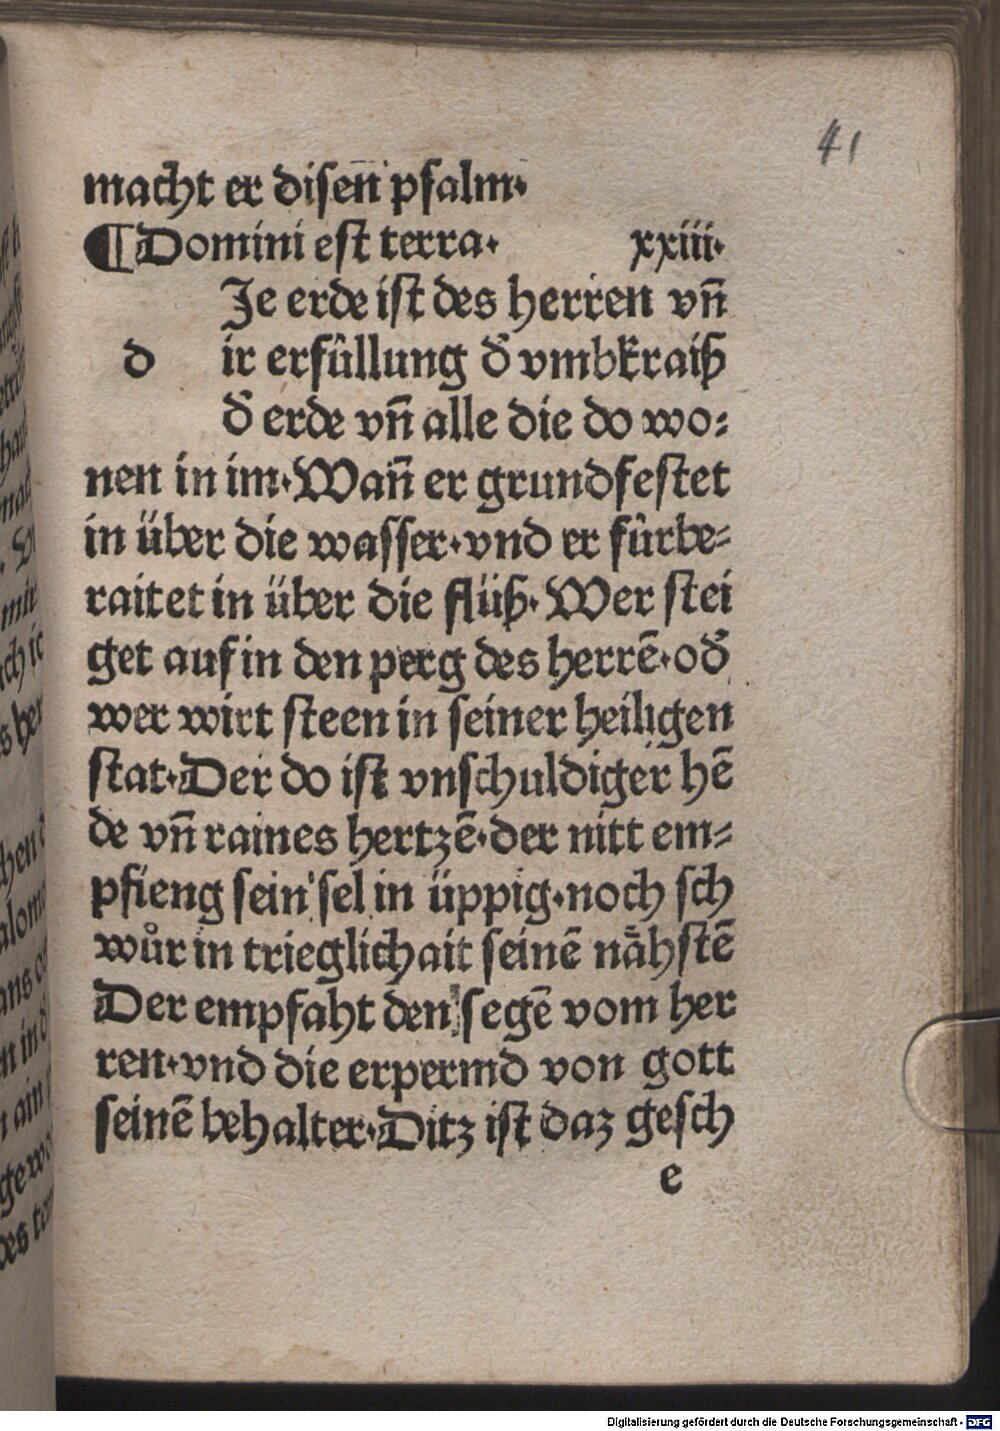 41
macht er disen̄ psalm·
¶Domini est terra· xxiii·
Je erde ist des herren vn̄
d ir erfûllung d̕ vmbkraiß
d̕ erde vn̄ alle die do wo⸗
nen in im·Wan̄ er grundfestet
in über die wasser·vnd er fûrbe⸗
raitet in über die flüß·Wer stei
get auf in den perg des herrē·od̕
wer wirt steen in seiner heiligen
stat·Der do ist vnschuldiger hē
de vn̄ raines hertzē·der nitt em⸗
pfieng sein sel in üppig·noch sch
wůr in trieglichait seinē nähstē
Der empfaht den segē vom her
ren·vnd die erpermd von gott
seinē behalter·Ditz ist daz gesch
e
Digitalisierung gefördert durch die Deutsche Forschungsgemeinschaft - DFG